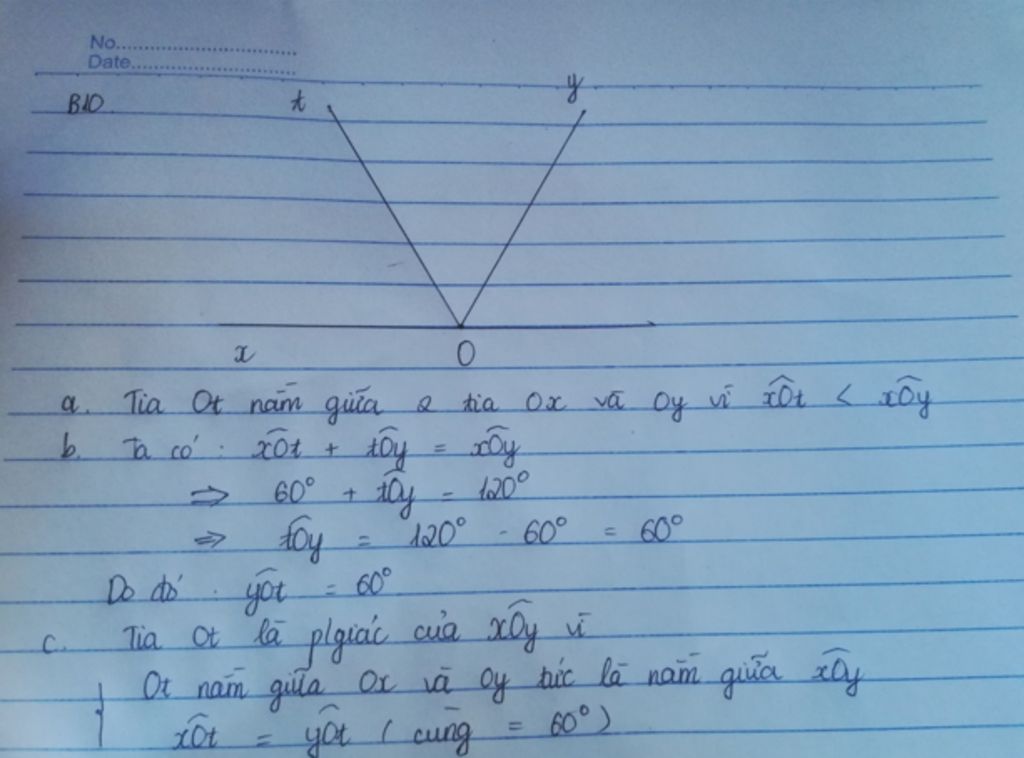 No....................................
Date....................................
B10
t y
x O
a. Tia Ot nằm giữa 2 tia Ox và Oy vì xÔt < xÔy
b. Ta có : xÔt + tÔy = xÔy
⇒ 60° + tÔy = 120°
⇒ tÔy = 120° - 60° = 60°
Do đó : yÔt = 60°
c. Tia Ot là p/giác của xÔy vì
Ot nằm giữa Ox và Oy tức là nằm giữa xÔy
xÔt = yÔt ( cùng = 60° )